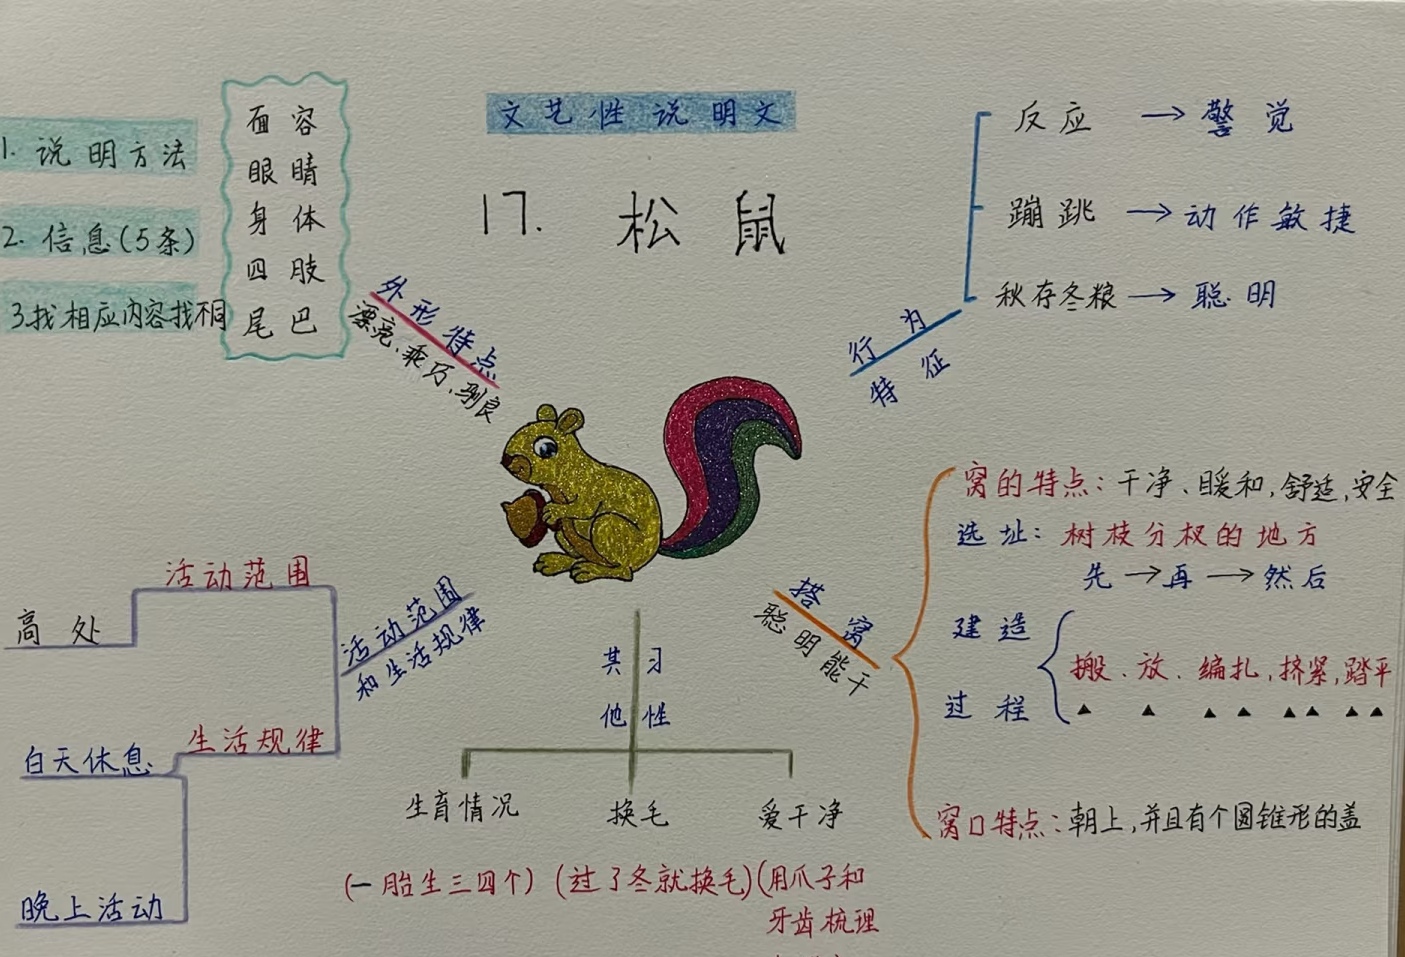 文艺性说明文
17. 松鼠
1. 说明方法
2. 信息(5条)
3.找相应内容找不同
面容
眼睛
身体
四肢
尾巴
外形特点
漂亮、乖巧、驯良
行为
特征
反应→警觉
蹦跳→动作敏捷
秋存冬粮→聪明
搭窝
聪明能干
窝的特点:干净、暖和,舒适,安全
选址:树枝分杈的地方
先→再→然后
建造
过程
搬、放、编扎,挤紧,踏平
窝口特点:朝上,并且有个圆锥形的盖
活动范围
和生活规律
活动范围
高处
生活规律
白天休息
晚上活动
其他
习性
生育情况
(一胎生三四个)
换毛
(过了冬就换毛)
爱干净
(用爪子和
牙齿梳理